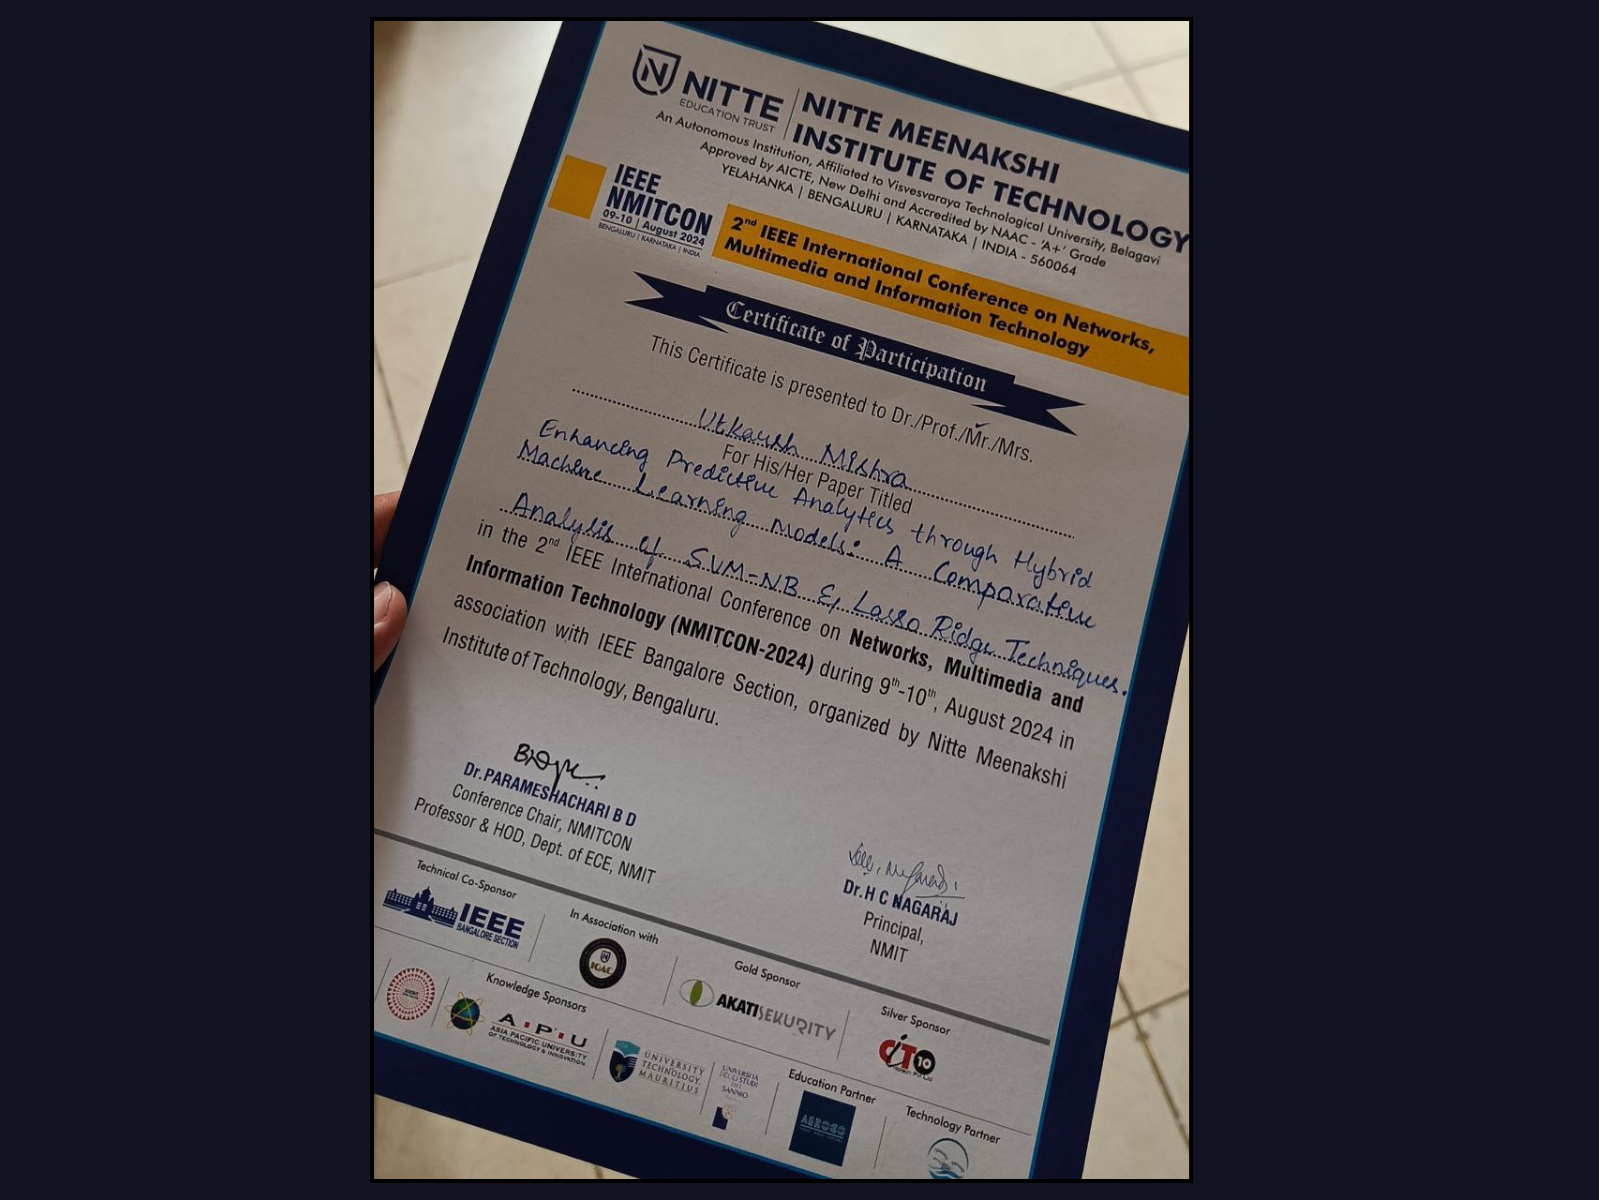 NITTE
EDUCATION TRUST
NITTE MEENAKSHI
INSTITUTE OF TECHNOLOGY
An Autonomous Institution, Affiliated to Visvesvaraya Technological University, Belagavi
Approved by AICTE, New Delhi and Accredited by NAAC - 'A+' Grade
YELAHANKA | BENGALURU | KARNATAKA | INDIA - 560064
IEEE
NMITCON
09-10 | August 2024
BENGALURU | KARNATAKA | INDIA
2nd IEEE International Conference on Networks,
Multimedia and Information Technology
Certificate of Participation
This Certificate is presented to Dr./Prof./Mr./Mrs.
Utkarsh Mishra
For His/Her Paper Titled
Enhancing Predictive Analytics through Hybrid
Machine Learning Models: A Comparative
Analysis of SVM-NB & Lasso Ridge Techniques.
in the 2nd IEEE International Conference on Networks, Multimedia and
Information Technology (NMITCON-2024) during 9th-10th, August 2024 in
association with IEEE Bangalore Section, organized by Nitte Meenakshi
Institute of Technology, Bengaluru.
Dr.PARAMESHACHARI B D
Conference Chair, NMITCON
Professor & HOD, Dept. of ECE, NMIT
Dr.H C NAGARAJ
Principal,
NMIT
Technical Co-Sponsor
IEEE
BANGALORE SECTION
In Association with
Gold Sponsor
AKATISEKURITY
Silver Sponsor
CiTO
10
Knowledge Sponsors
A·P·U
ASIA PACIFIC UNIVERSITY
OF TECHNOLOGY & INNOVATION
UNIVERSITY
TECHNOLOGY,
MAURITIUS
UNIVERSITÀ
DEGLI STUDI
DEL
SANNIO
Education Partner
Technology Partner